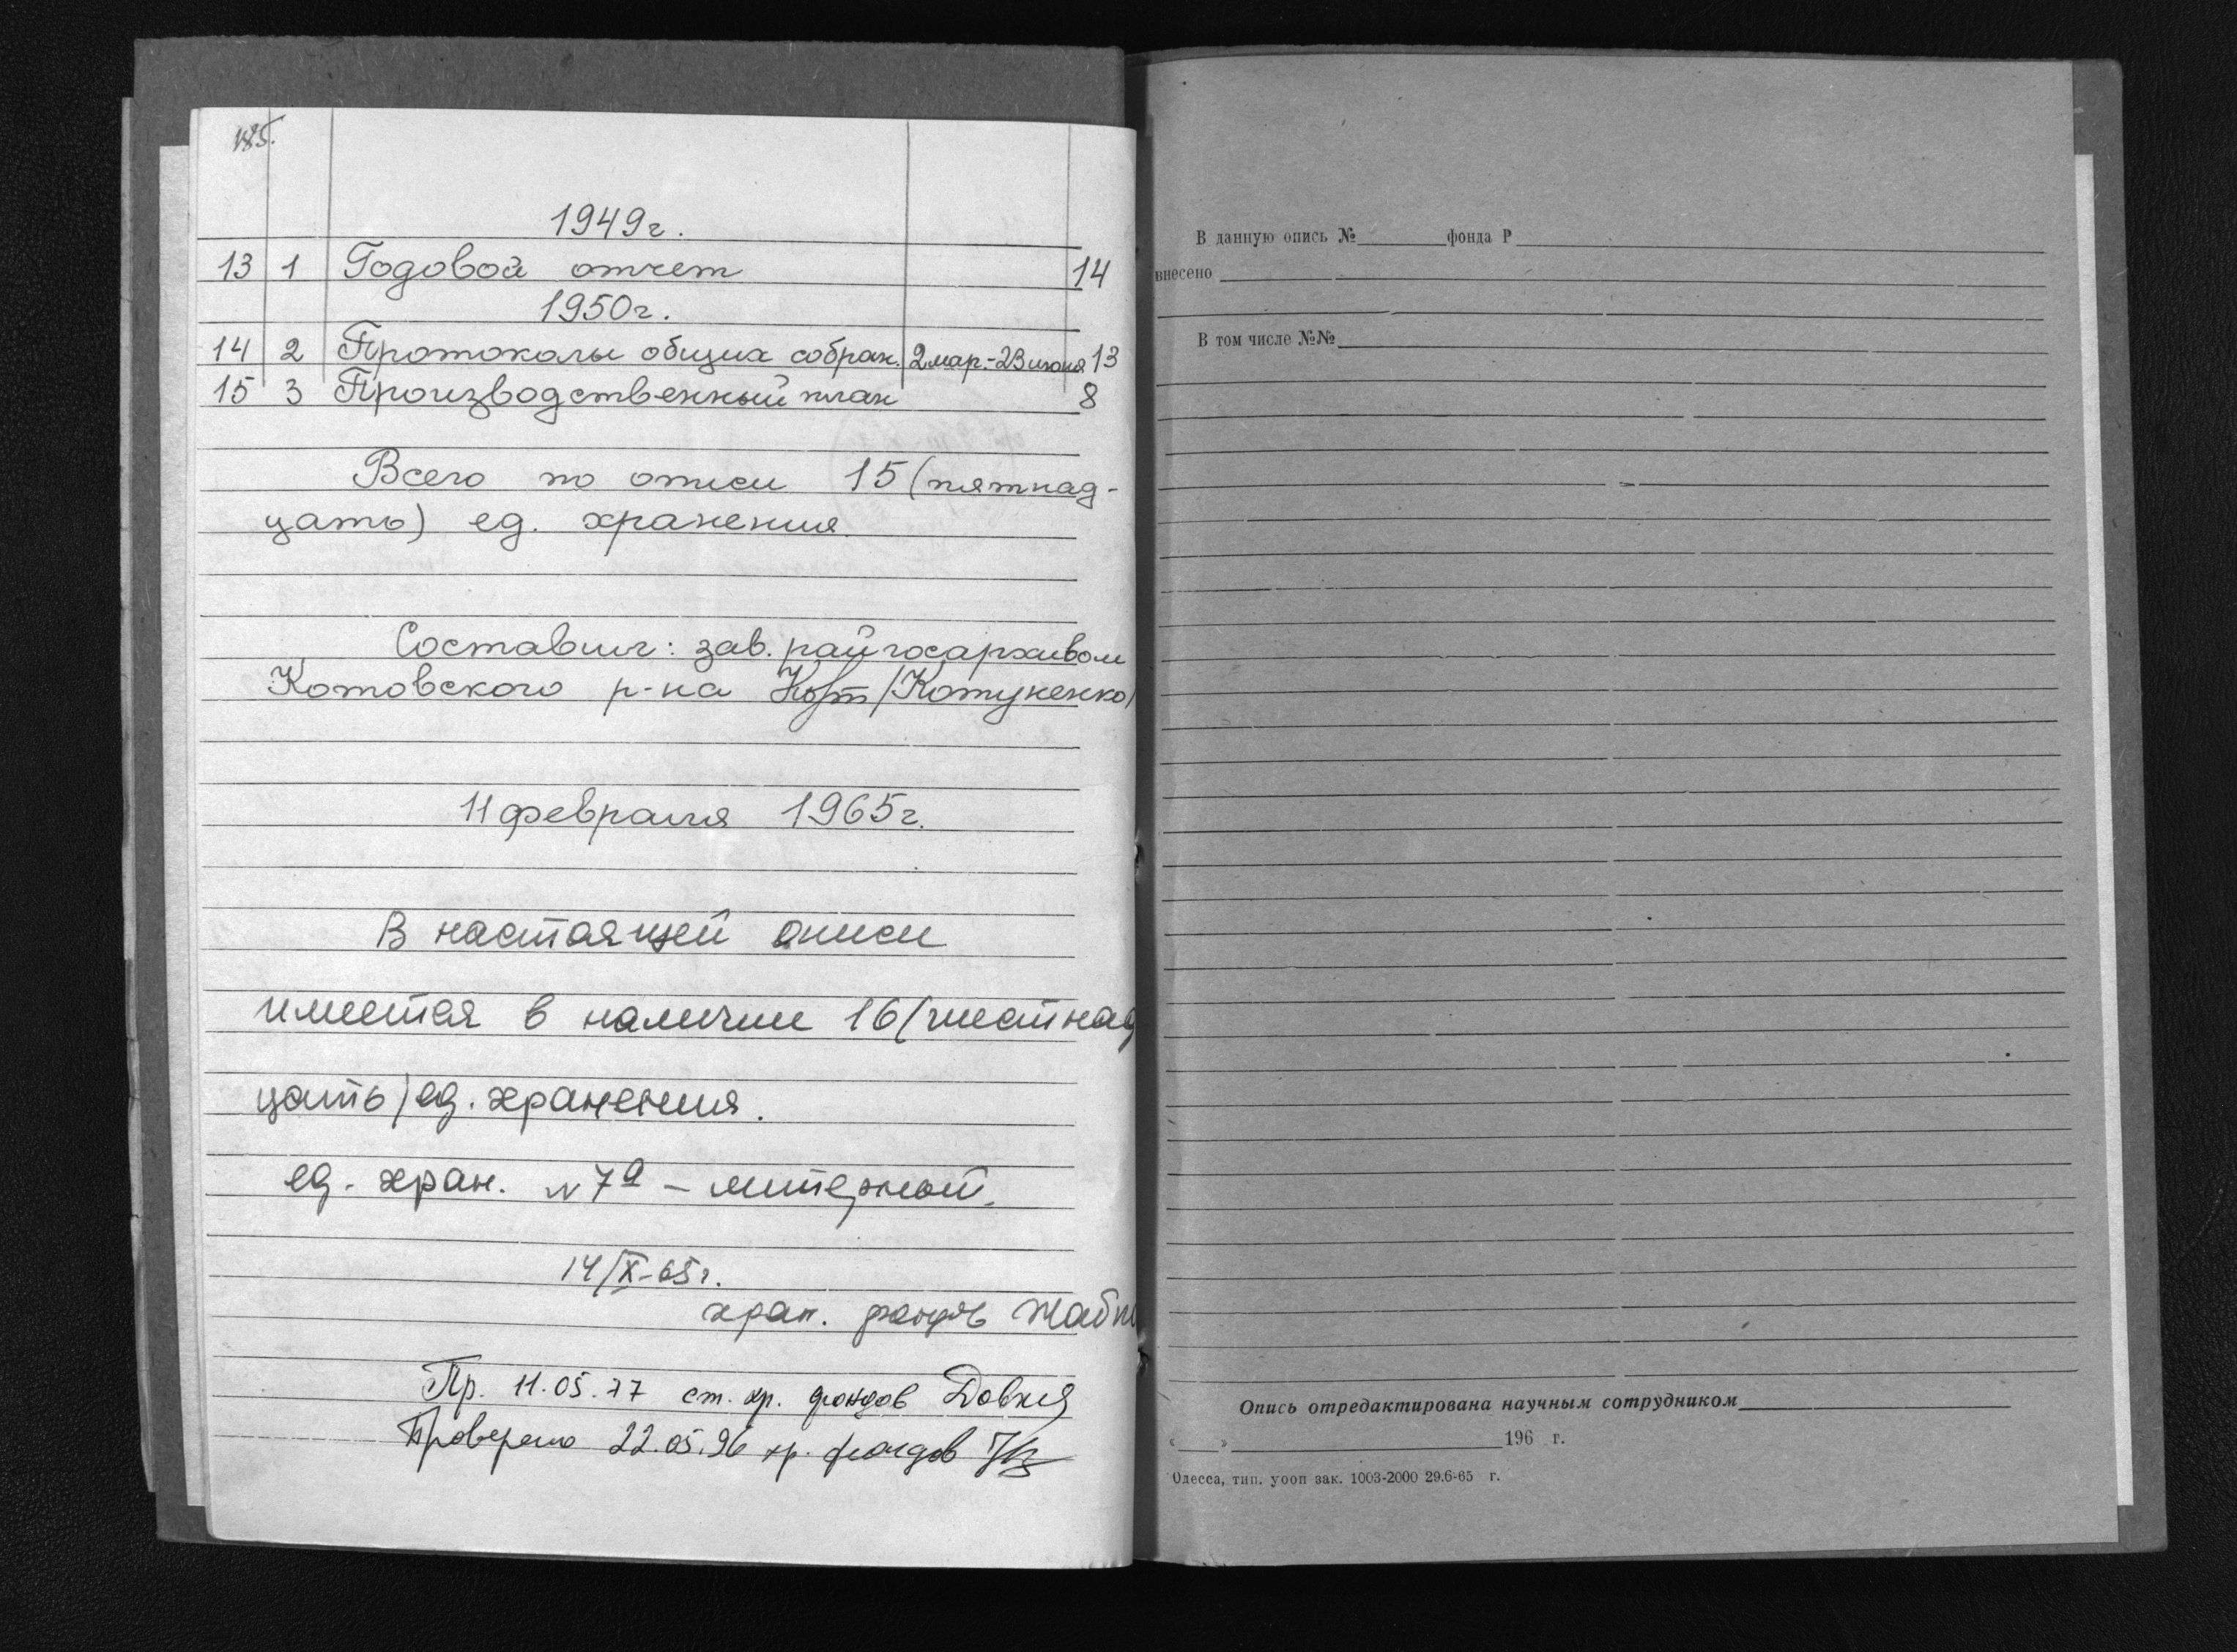 185.
1949г.
13 1 Годовой отчет 14
1950г.
14 2 Протоколы общих собран. 2 мар.-23 июня 13
15 3 Производственный план 8
Всего по описи 15 (пятнад-
цать) ед. хранения.
Составил: зав. райгосархивом
Котовского р-на /Котукенко/
11 февраля 1965г.
В настоящей описи
имеется в наличии 16 (шестнад
цать) ед. хранения.
ед. хран. N 7а – литерный.
14/X-65г.
хран. фондов
Пр. 11.05.77 ст. хр. фондов
Проверено 22.05.96 хр. фондов
В данную опись № фонда Р
внесено
В том числе №№
Опись отредактирована научным сотрудником
« » 196 г.
Одесса, тип. уооп зак. 1003-2000 29.6-65 г.